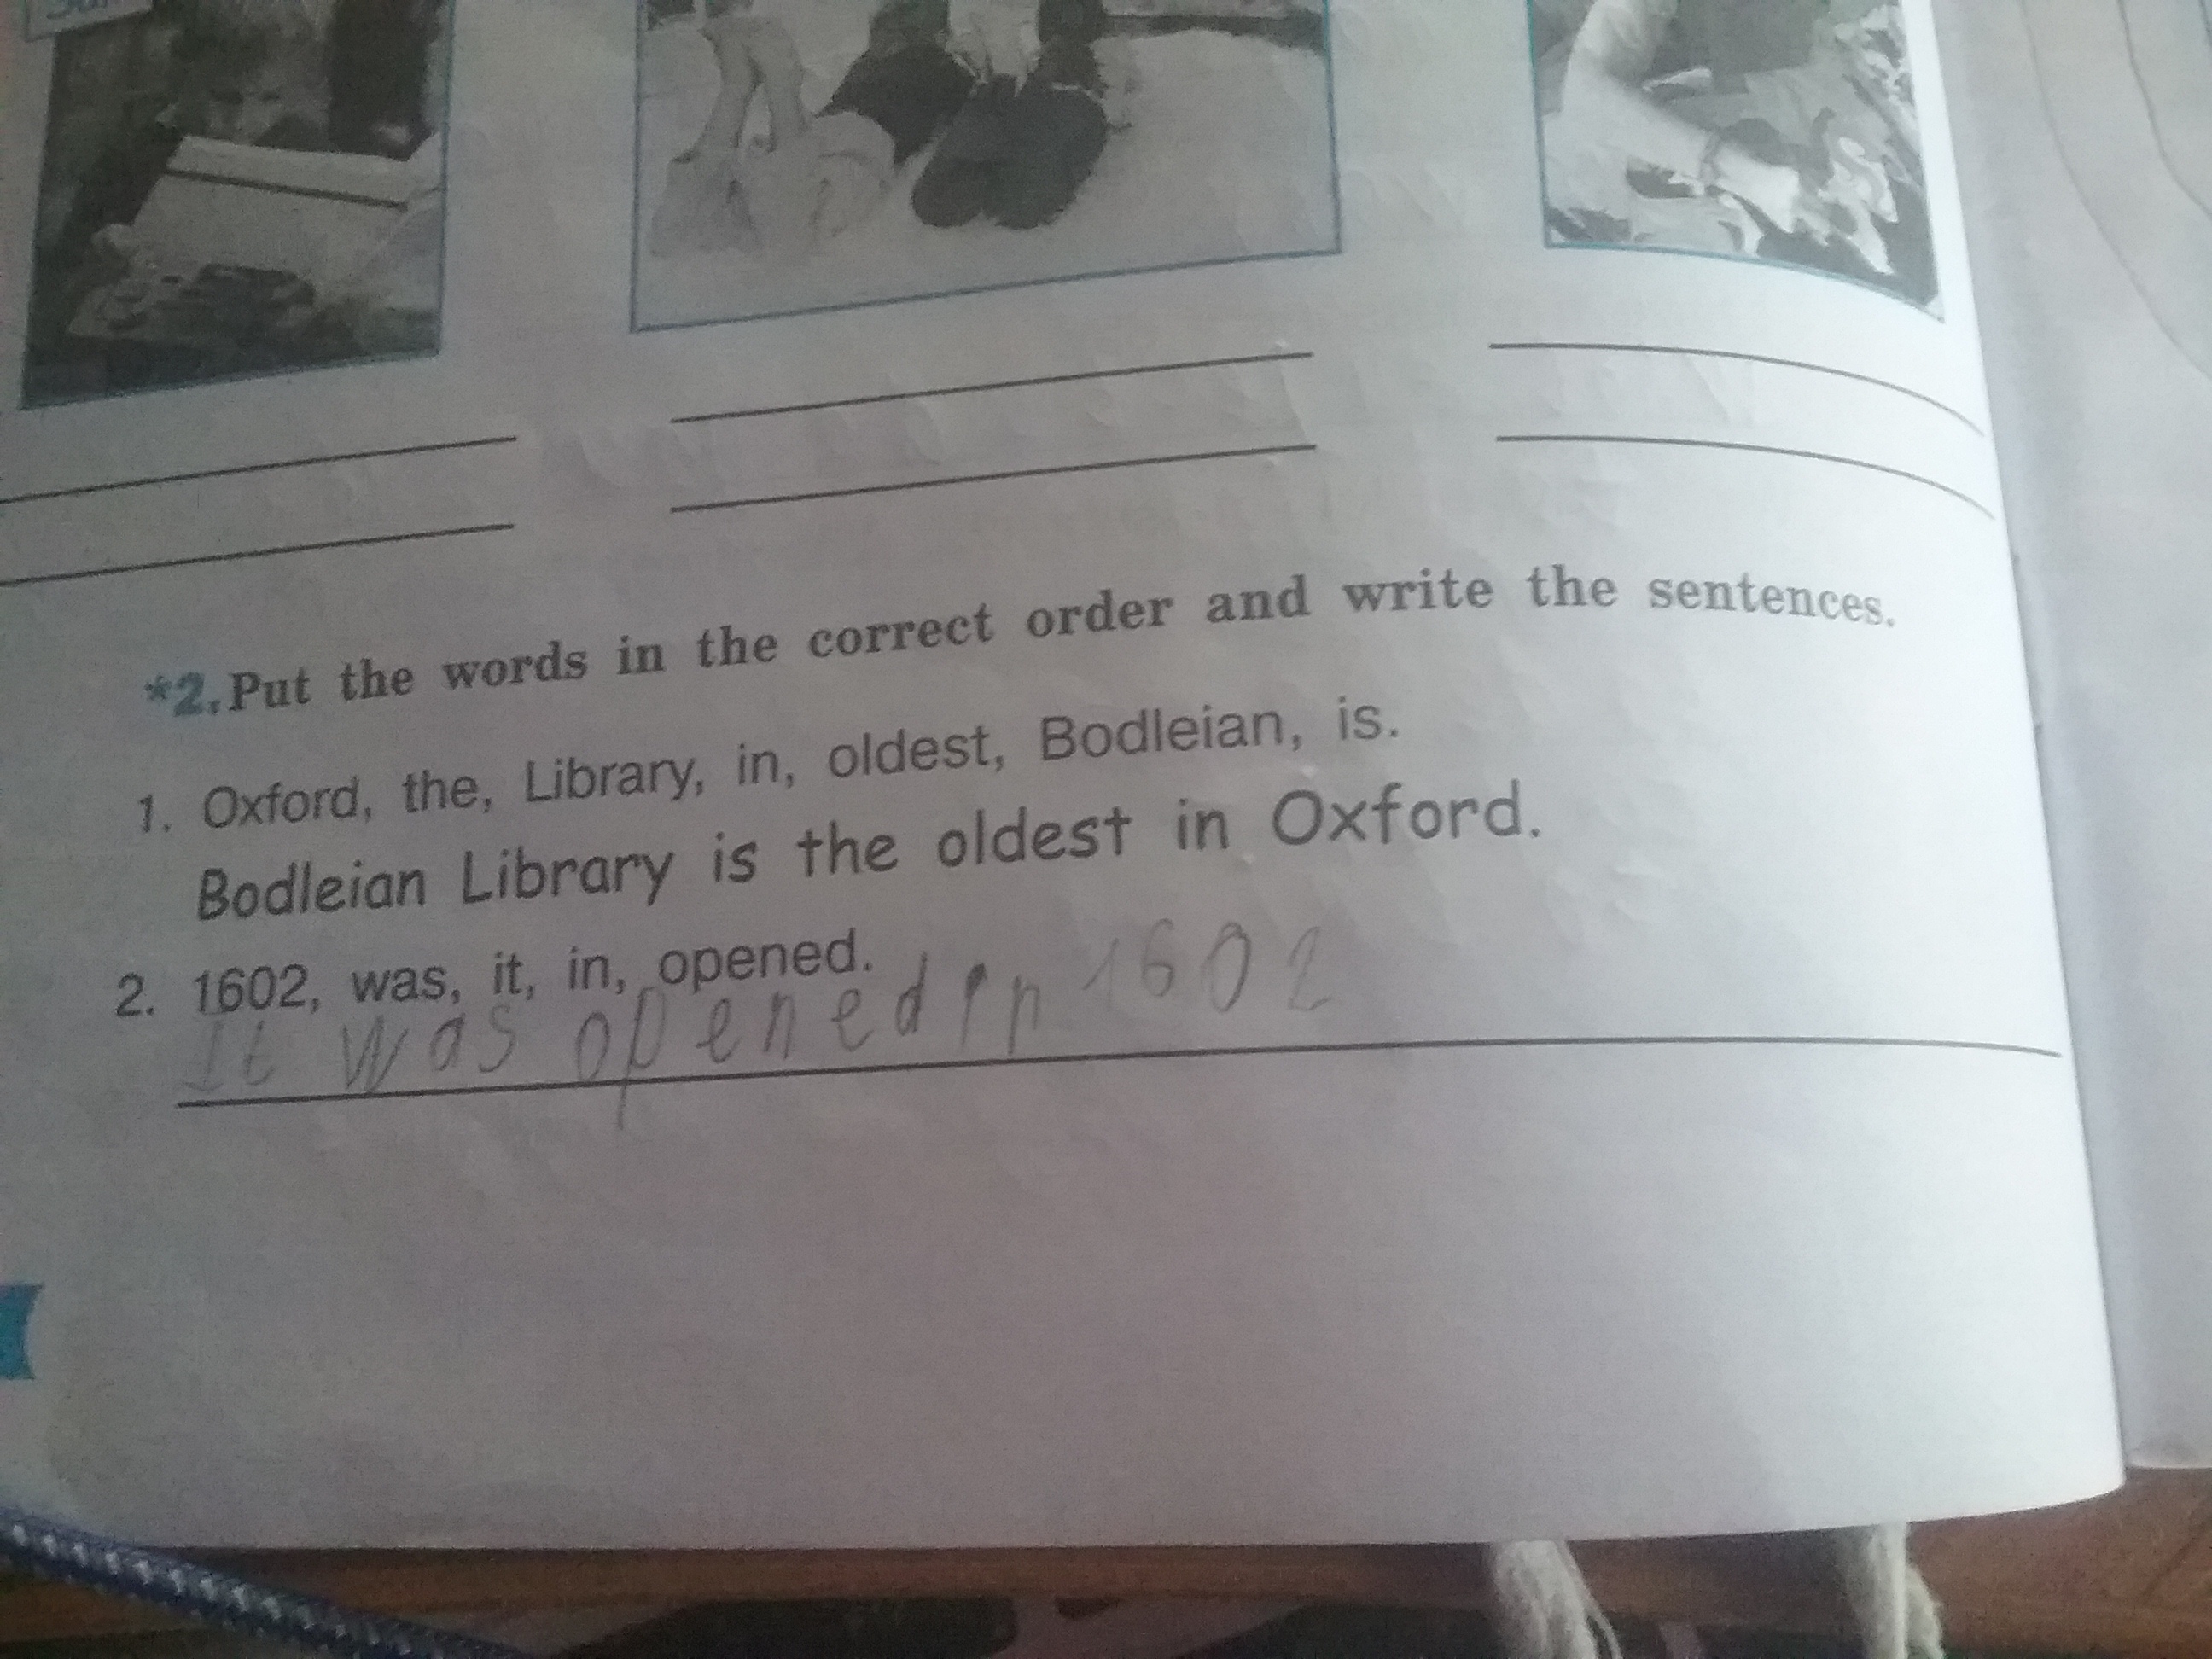 *2. Put the words in the correct order and write the sentences.
1. Oxford, the, Library, in, oldest, Bodleian, is.
Bodleian Library is the oldest in Oxford.
2. 1602, was, it, in, opened.
It was opened in 1602